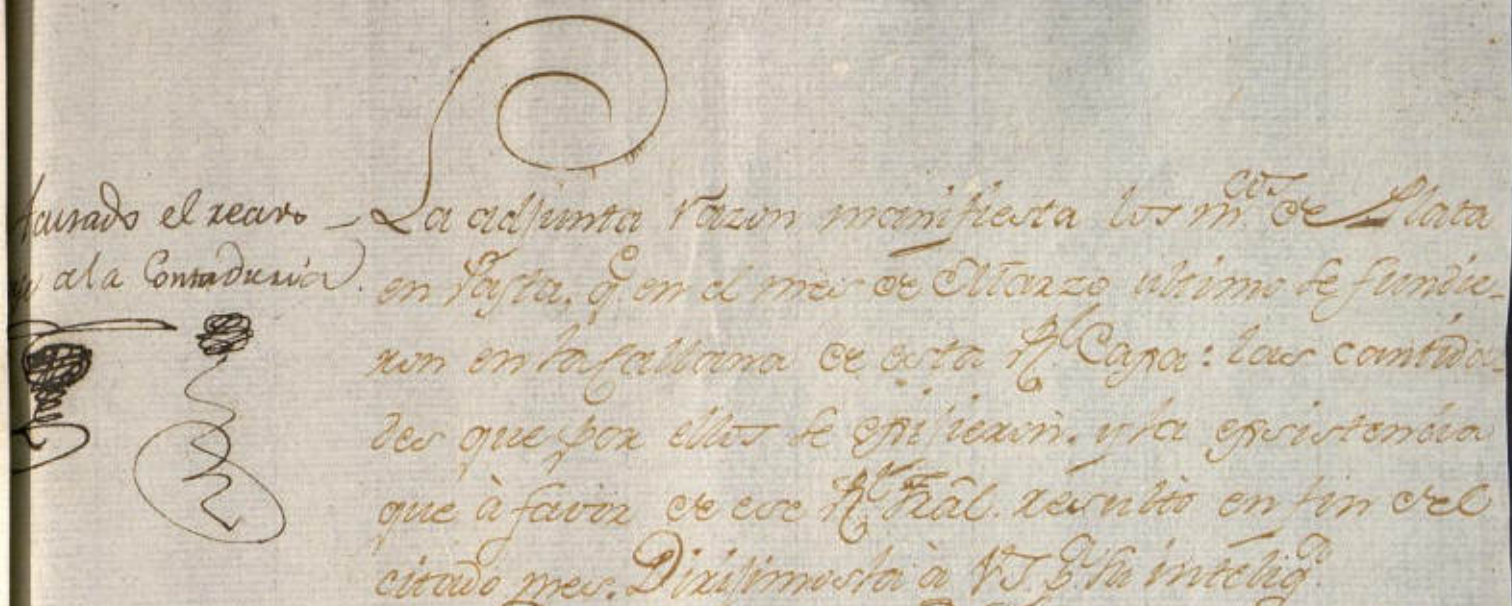 el recivo
a la Contaduria.
La adjunta Razon manifiesta los m.cos de Plata
en Pasta, q.e en el mes de Marzo ultimo se fundie-
ron en la Callana de esta R.l Caxa: las cantida-
des que por ellos se exijieron, y la existencia
que à favor de ese R.l Trãl. resultò en fin del
citado mes. Dirijimosla à VS. p.a su intelig.a